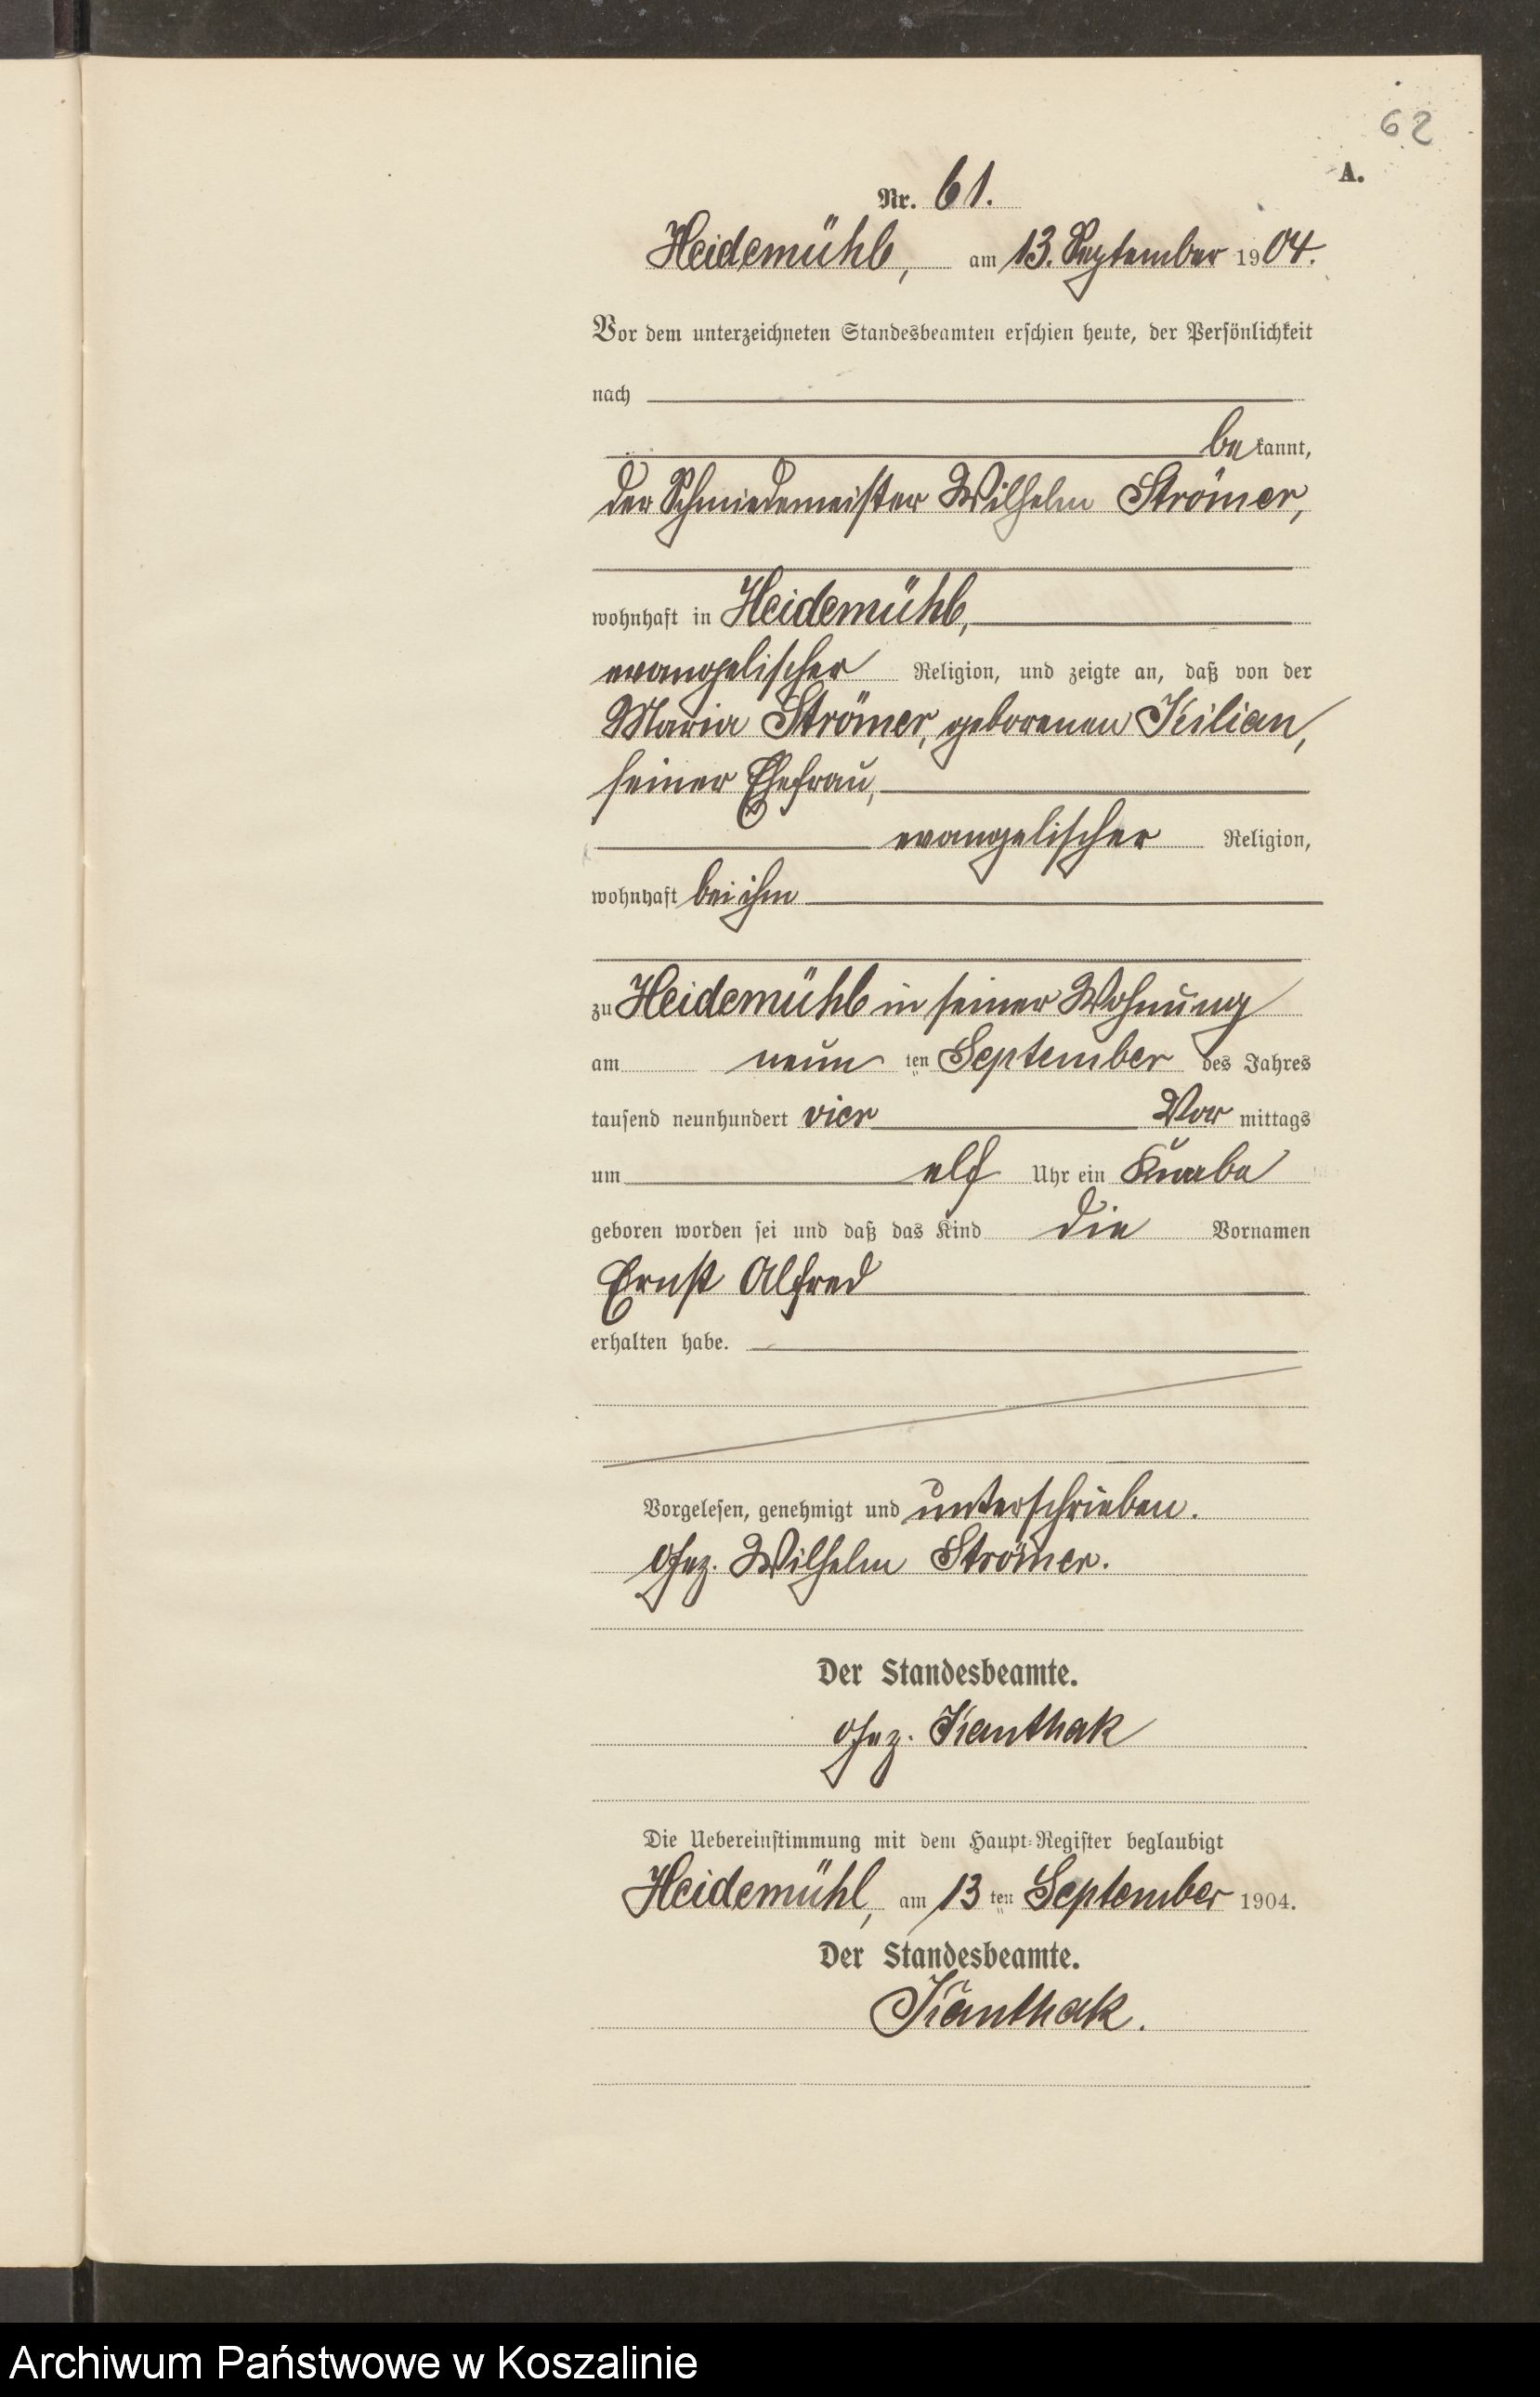 62
A.
Nr. 61.
Heidemühl, am 13. September 1904.
Vor dem unterzeichneten Standesbeamten erschien heute, der Persönlichkeit
nach
bekannt,
der Schmiedemeister Wilhelm Strömer,
wohnhaft in Heidemühl,
evangelischer Religion, und zeigte an, daß von der
Maria Strömer, geborenen Kilian,
seiner Ehefrau,
evangelischer Religion,
wohnhaft bei ihm
zu Heidemühl in seiner Wohnung
am neun ten September des Jahres
tausend neunhundert vier Vor mittags
um elf Uhr ein Knabe
geboren worden sei und daß das Kind die Vornamen
Ernst Alfred
erhalten habe.
Vorgelesen, genehmigt und unterschrieben.
Gez. Wilhelm Strömer.
Der Standesbeamte.
Gez. Kanthak
Die Uebereinstimmung mit dem Haupt-Register beglaubigt
Heidemühl, am 13 ten September 1904.
Der Standesbeamte.
Kanthak.
Archiwum Państwowe w Koszalinie